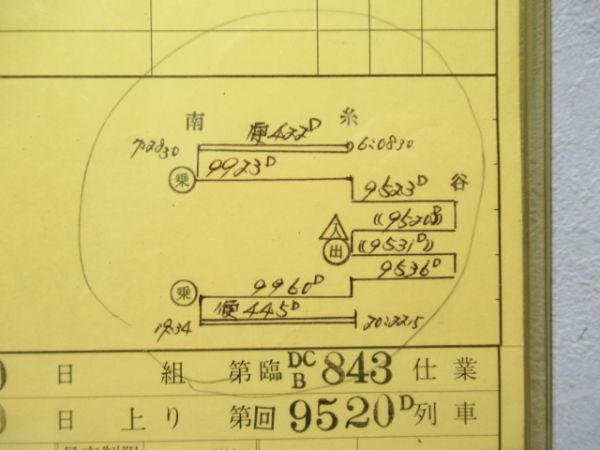 南 糸
便422D
7:28 30 6:08 30
9923D
乗
9523D 谷
((9520D))
入
出 ((9531D))
9536D
乗 9960D
便445D
19:34 20:22 15
日 組 第臨DCB843仕業
日 上り 第回9520D列車